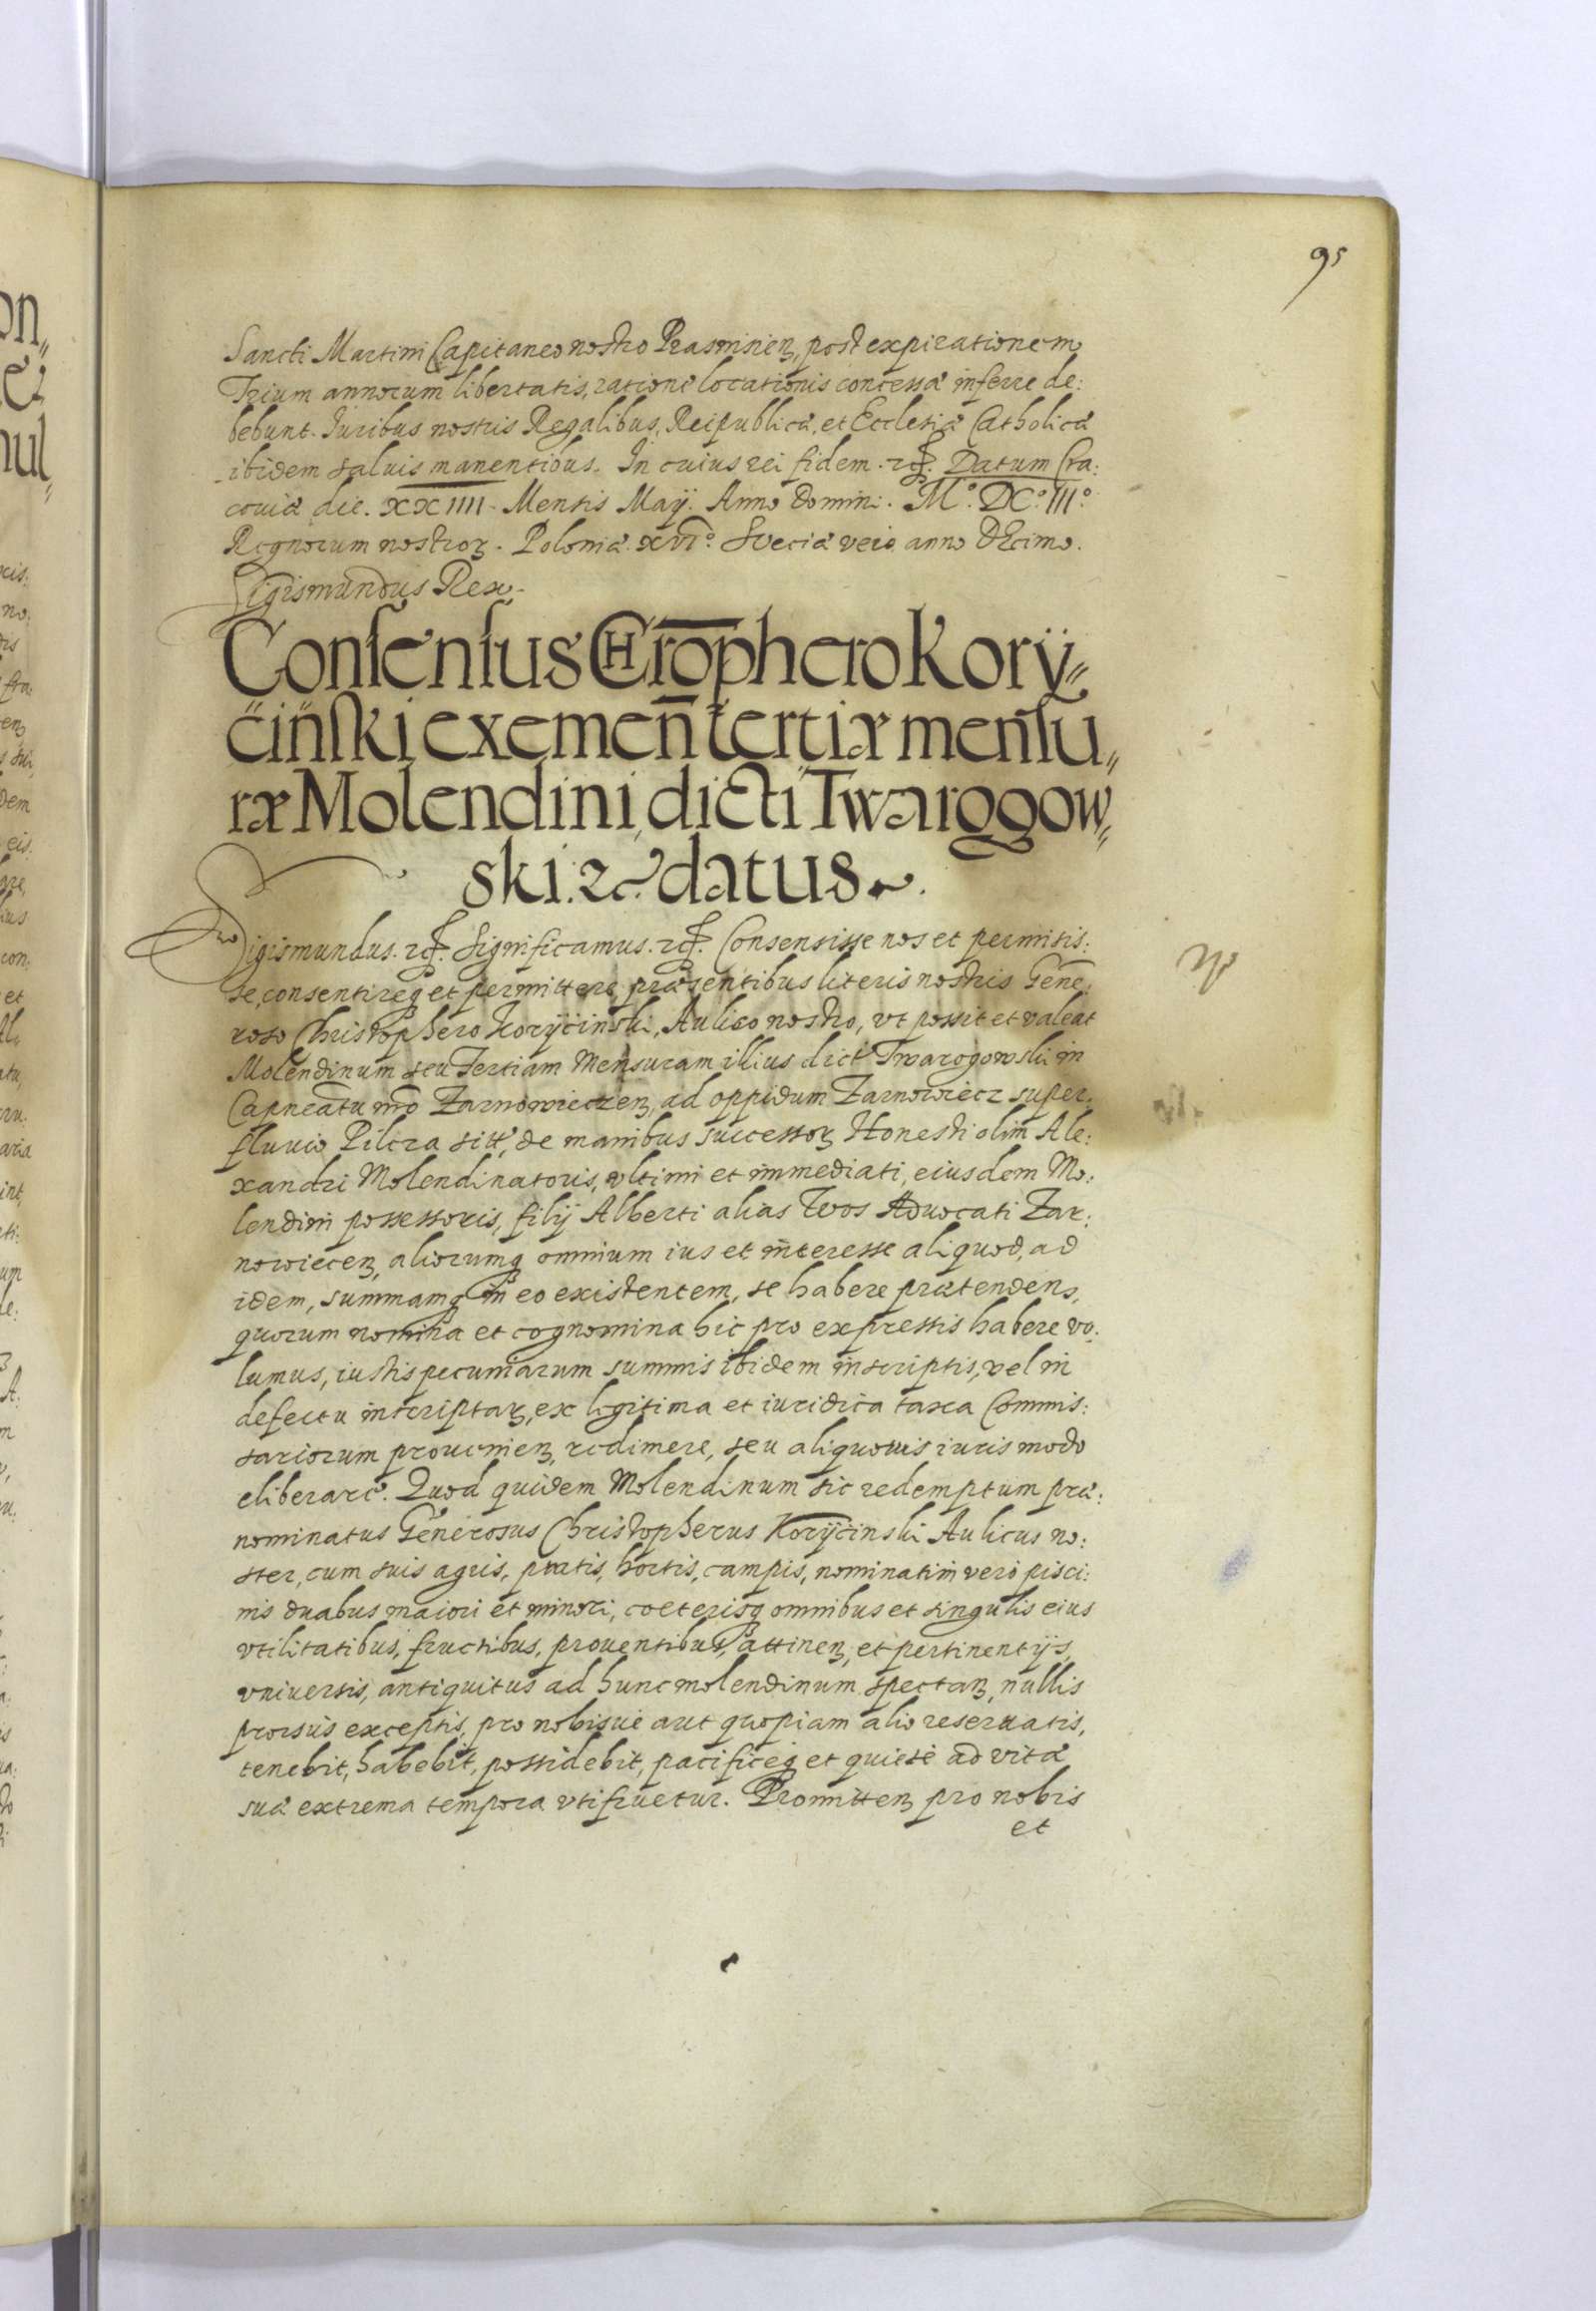 95
Sancti Martini Capitaneo nostro Prasnisień, post expirationem
Trium annorum libertatis, ratione locationis concessæ inferre de:
bebunt. Iuribus nostris Regalibus, Reipublicæ, et Ecclesiæ Catholicæ
ibidem saluis manentibus. In cuius rei fidem. etc. Datum Cra:
couiæ die. XXIIII. Mensis Maÿ. Anno Domini. M.° DC.° III.°
Regnorum nostroꝝ. Poloniæ. XVI.° Sveciæ vero anno DEcimo.
Sigismundus Rex.
Consensus CHrophero Korÿ„
ciński exemeñ tertiæ mensu„
ræ Molendini dicti Twaroggow„
ski. etc. datus.
Sigismundus. etc. Significamus. etc. Consensisse nos et permisis:
se, consentireq et permittere præsentibus literis nostris Gene:
roso Christophero Korÿcinski, Aulico nostro, vt possit et valeat
Molendinum seu Tertiam Mensuram illius dict Twarogowski in
Capneatu nro Zarnowieczeñ, ad oppidum Zarnowiecz super
fluuio Pilcza sitt, de manibus successoꝝ Honesti olim Ale:
xandri Molendinatoris, vltimi et immediati, eiusdem Mo:
lendini possessoris, filÿ Alberti alias Wos Aduocati Zar:
nowieceñ, aliorumq omnium ius et interesse aliquod, ad
idem, summamq in eo existentem, se habere prætendens,
quorum nomina et cognomina hic pro expressis habere vo:
lumus, iustis pecuniarum summis ibidem inscriptis, vel in
defectu inscriptaꝝ, ex legitima et iuridica taxa Commis:
sariorum prouenieñ, redimere, seu aliquouis iuris modo
eliberare. Quod quidem Molendinum sic redemptum præ:
nominatus Generosus Christopherus Korÿcinski Aulicus no:
ster, cum suis agris, pratis, hortis, campis, nominatim vero pisci:
nis duabus maiori et minori, cœterisq omnibus et singulis eius
vtilitatibus, fructibus, prouentibus, attineñ, et pertinentÿs,
vniuersis, antiquitus ad hunc molendinum spectañ, nullis
prorsus exceptis, pro nobisue aut quopiam alio reseruatis,
tenebit, habebit, possidebit, pacificeq et quiete ad vitæ
suæ extrema tempora vtifruetur. Promitteñ pro nobis
et